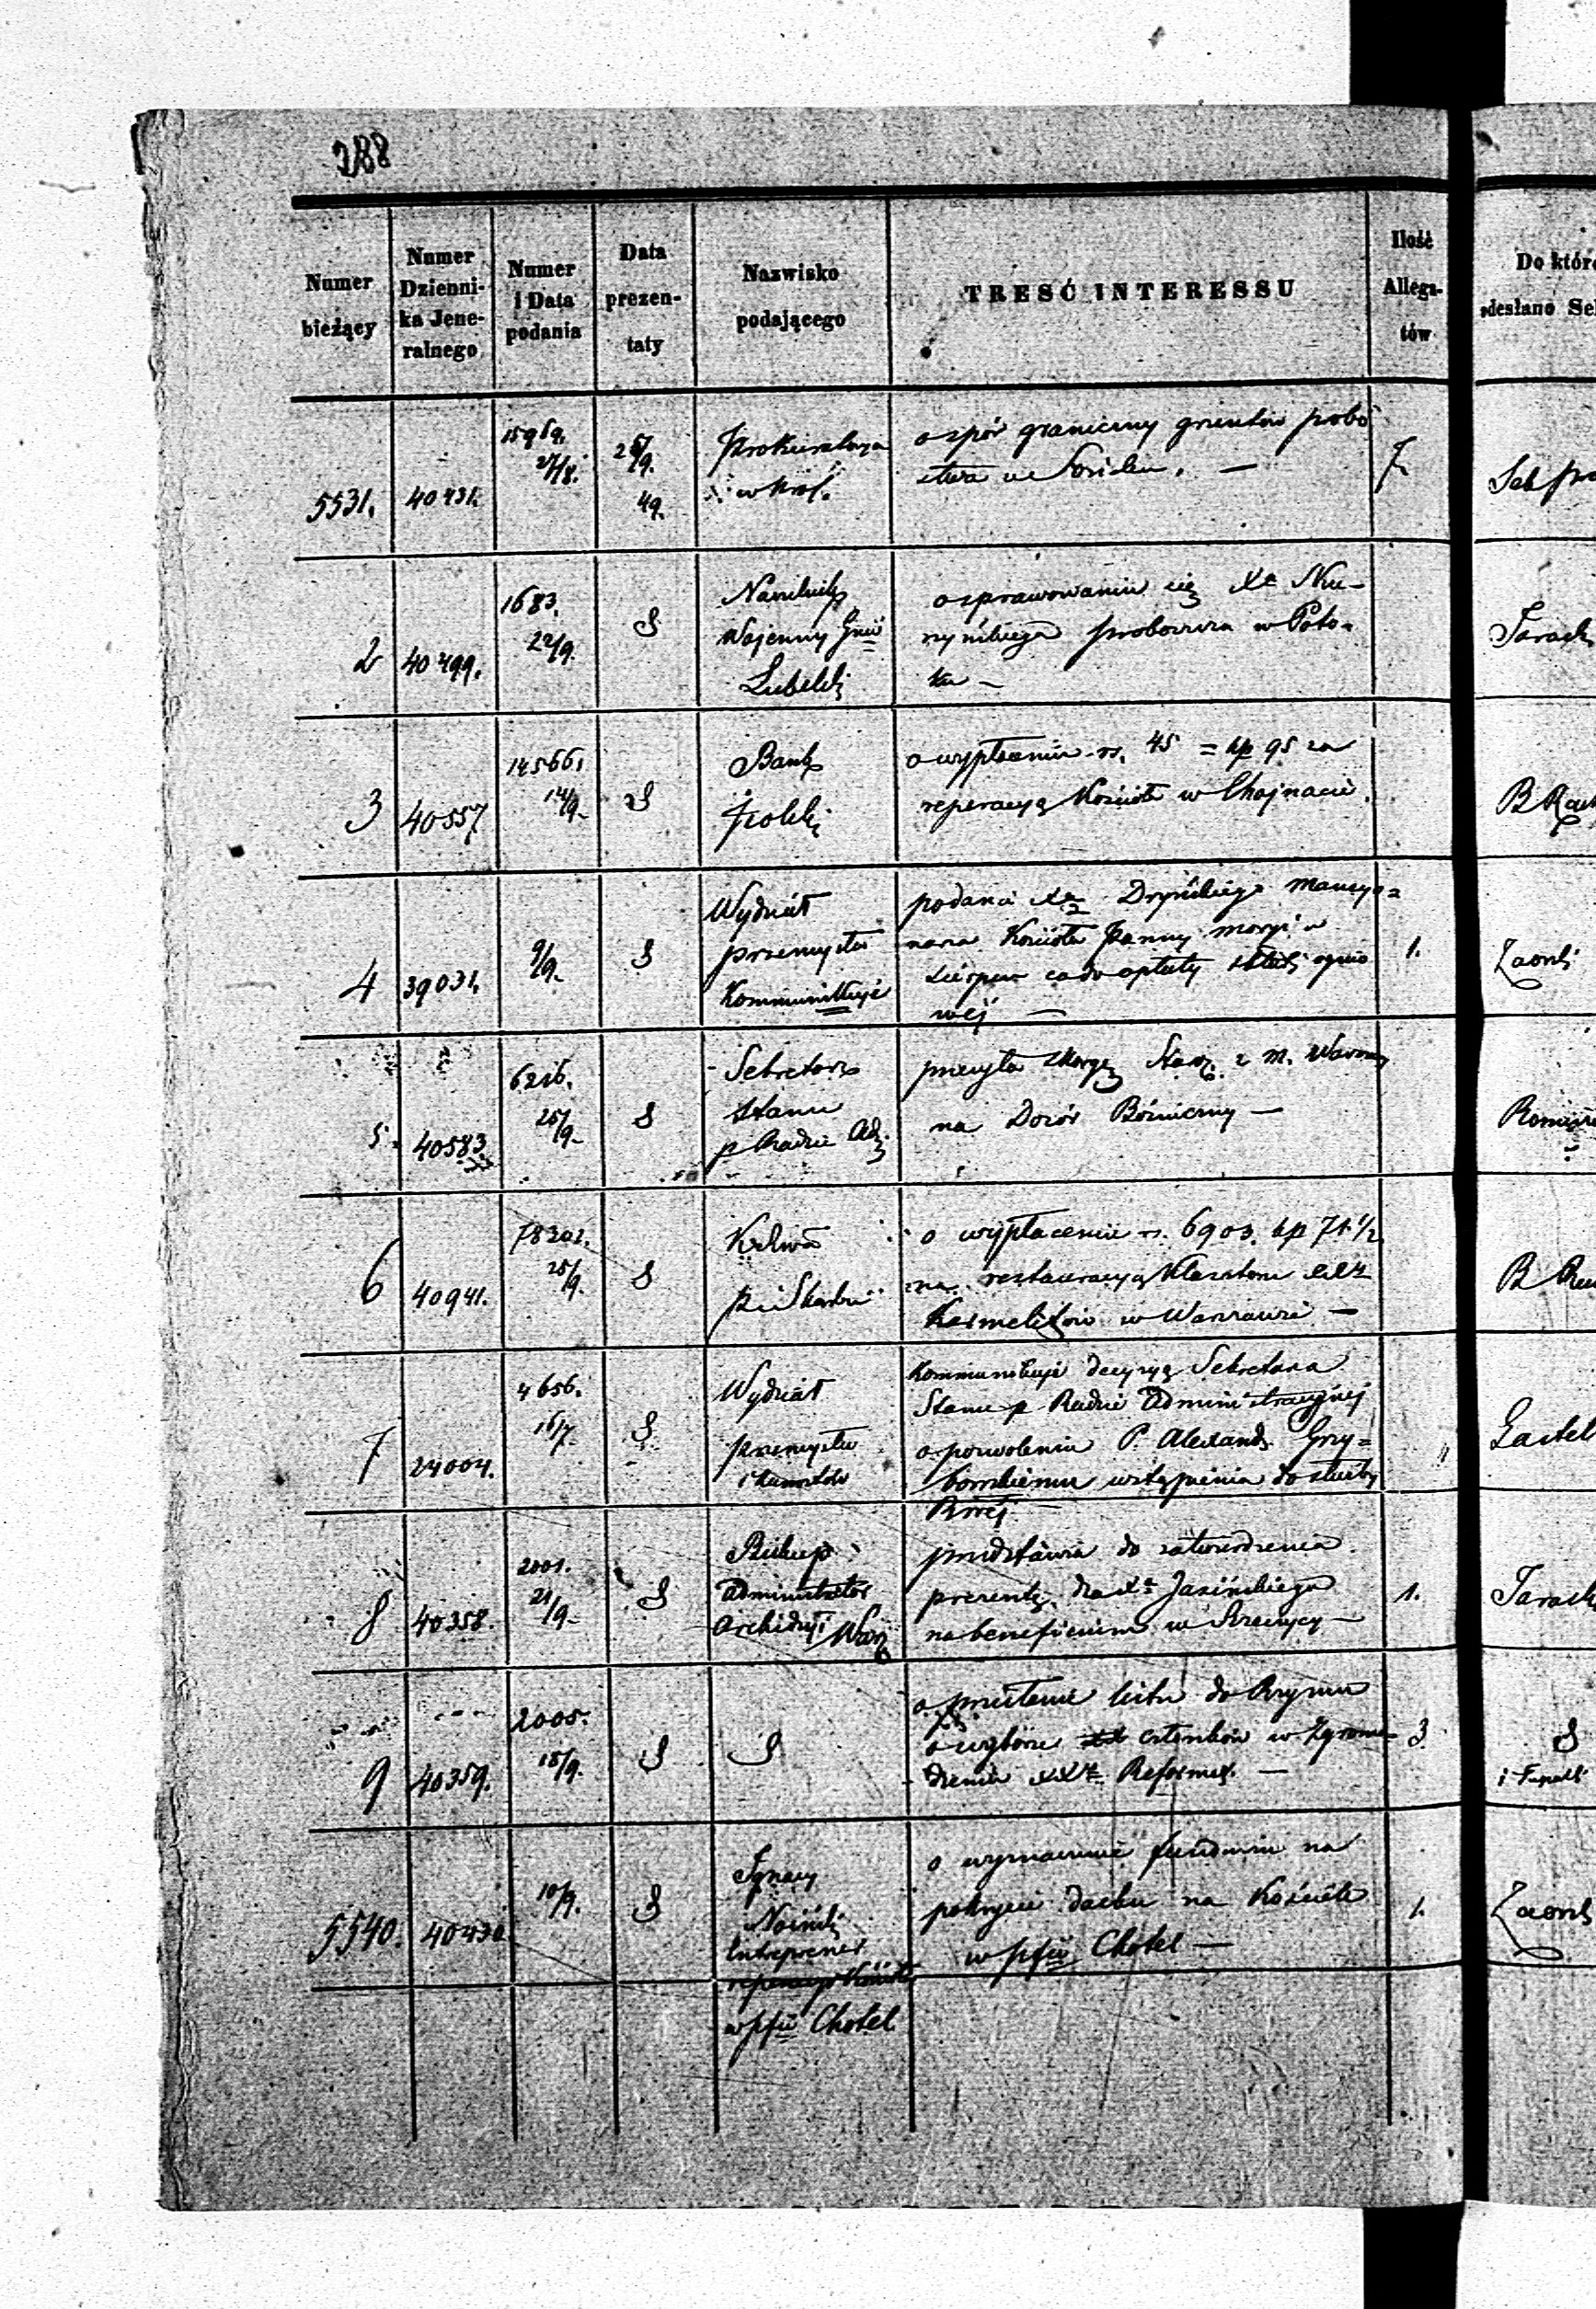 288
Numer bieżący
Numer Dzienni- ka Jene- ralnego
Numer i Data podania
Data prezen- taty
Nazwisko podającego
TRESĆ INTERESSU
Ilość Allega- tów
Do któr
odesłano Se
5531. 40431. 15969. 27/8. 26/9. 49. Prokuratorya w Król.
o spór graniczny gruntów probo
stwa we
Sek
2 40499. 1683. 22/9. S Naczelnik Wojenny Gnii Lubelsk
o sprawowaniu się Xa
proboszcza w Poto-
ku —
Tarach
3 40557 14566. 14/9. S Bank Polski
o wypłacenie rs. 45 = kp 95 za
reperacyą Kościoła w Chojnacie.
B
4 39031. 9/9. S Wydział przemysłu Kommunikuje
podanie Xa Dryńskiego Mansyo=
narza Kościoła Panny Maryi w
co do opłaty składki ognio
wéj —
1.
5. 40583 6216. 25/9. S Sekretarz Stanu p Radzie Ad.
przesyła skargę Star. z m. Warszawy
na Dozór Bóżniczny —
6 40941. 78202. 25/9. S Kr Skarbu
o wypłacenie rs. 6903. kp 71 1/2
na restauracyą Klasztoru
Karmelitów w Warszawie —
B
7 24004. 4656. 16/7. S Wydział przemysłu i kunsztów
Kommunikuje decyzyą Sekretarza
Stanu p Radzie Administracyjnéj
o pozwoleniu P. Alexand. Grzy=
borskiemu wstąpienia do służby
8 40358. 2001. 21/9. S Biskup Administrator Archidyi Warsz
przedstawia do zatwierdzenia
prezentę dla Xa Jasińskiego
na beneficium w —
1.
Tarach
9 40359. 2005. 18/9. S S
o przesłanie listu do Rzymu
o wyborze członków w Zgroma-
dzeniu XXów Reformat. —
3
S
5540. 40430 10/9. S Ignacy Entreprener reperacyi Kościoła w pfii Chotel
o wyznaczenie funduszu na
pokrycie dachu na Kościele
w pfii Chotel —
1.